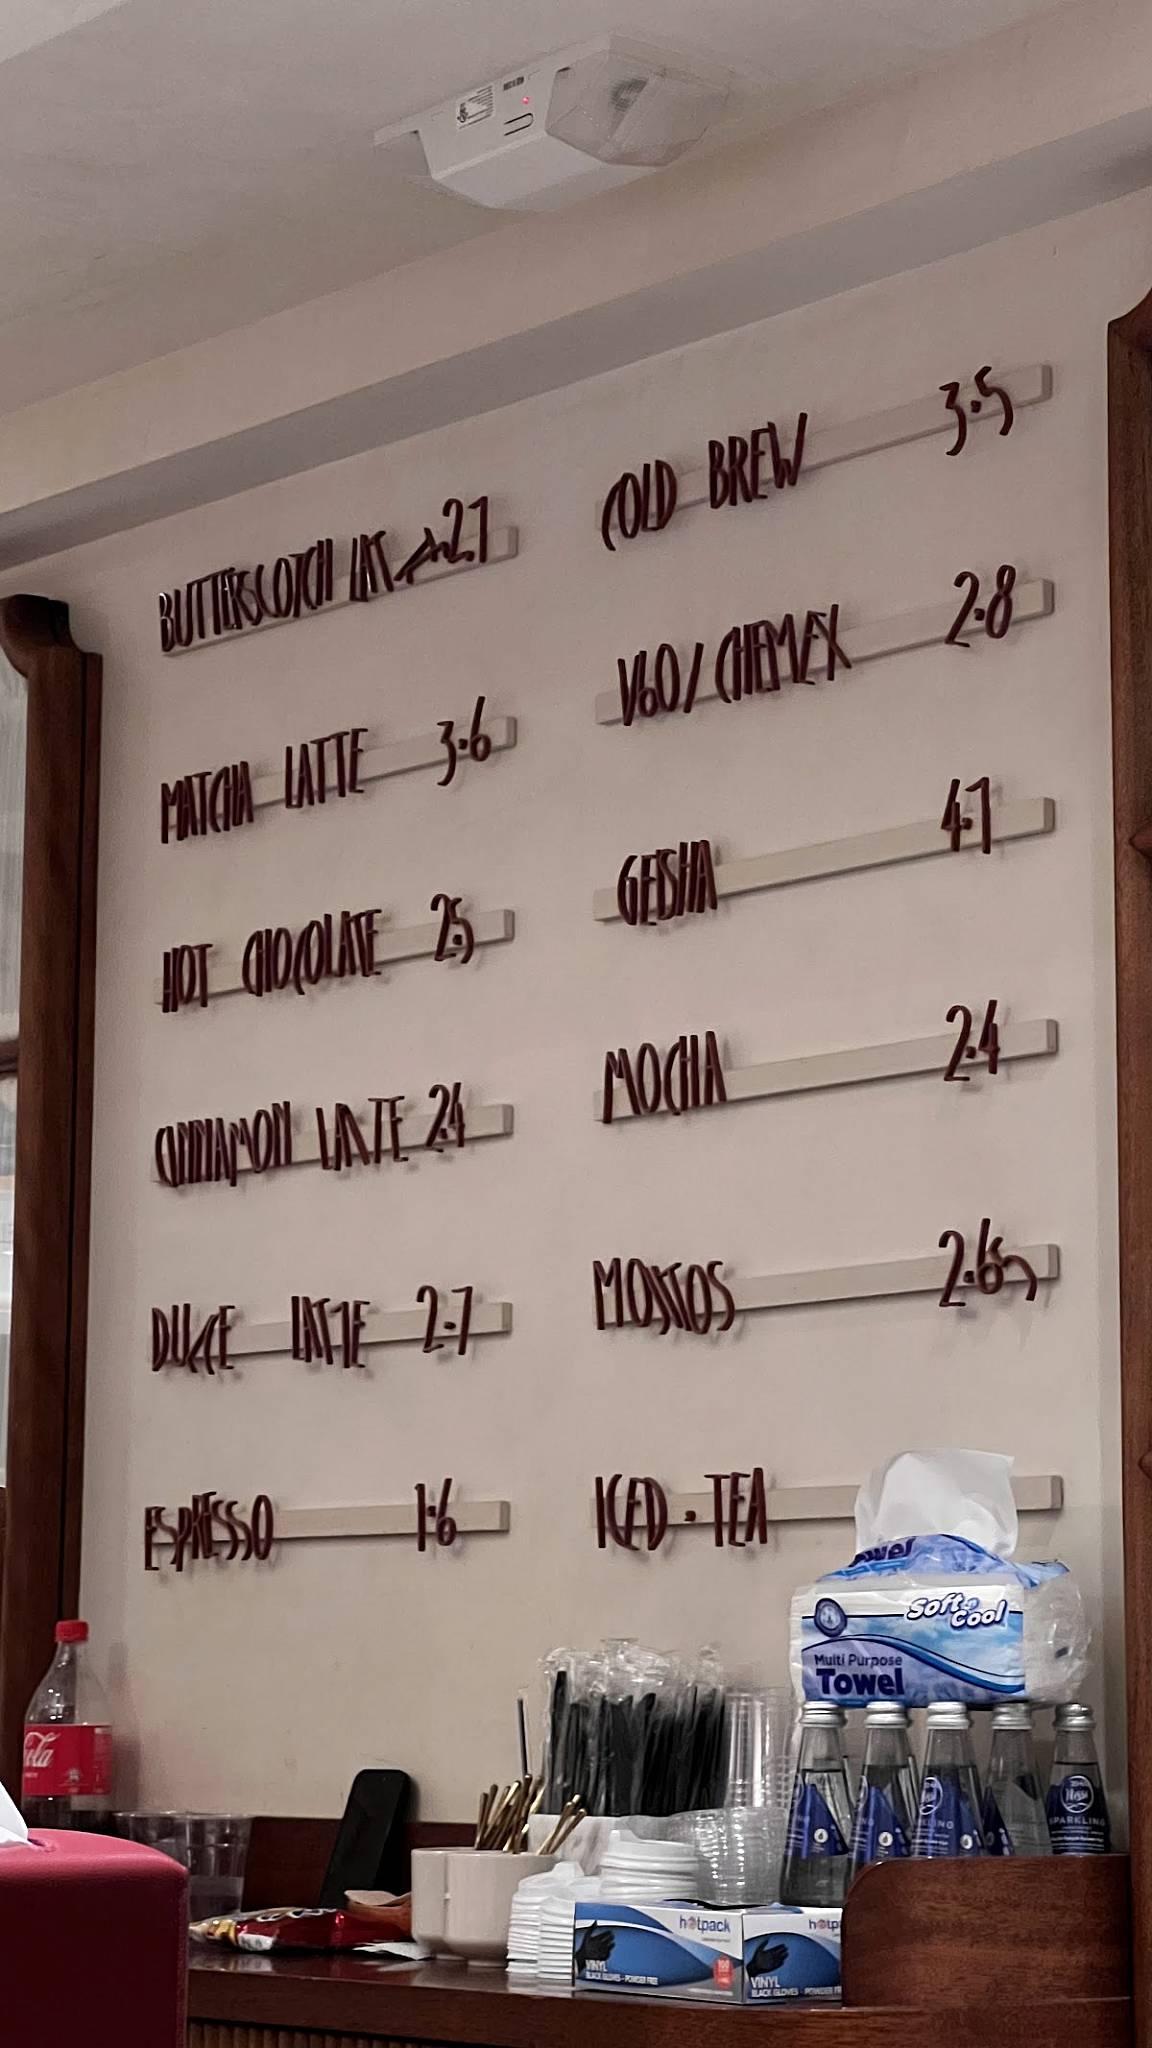 BUTTERSCOTCH LATTE 2.7
MATCHA LATTE 3.6
HOT CHOCOLATE 2.5
CINNAMON LATTE 2.4
DULCE LATTE 2.7
ESPRESSO 1.6
COLD BREW 3.5
V60/CHEMEX 2.8
GEISHA 4.7
MOCHA 2.4
2.65
ICED.TEA
Towel
Soft & Cool
Multi Purpose
Towel
SPARKLING
hotpack
VINYL
BLACK GLOVES - POWDER FREE
hotp
VINYL
BLACK GLOVES - POWDER F